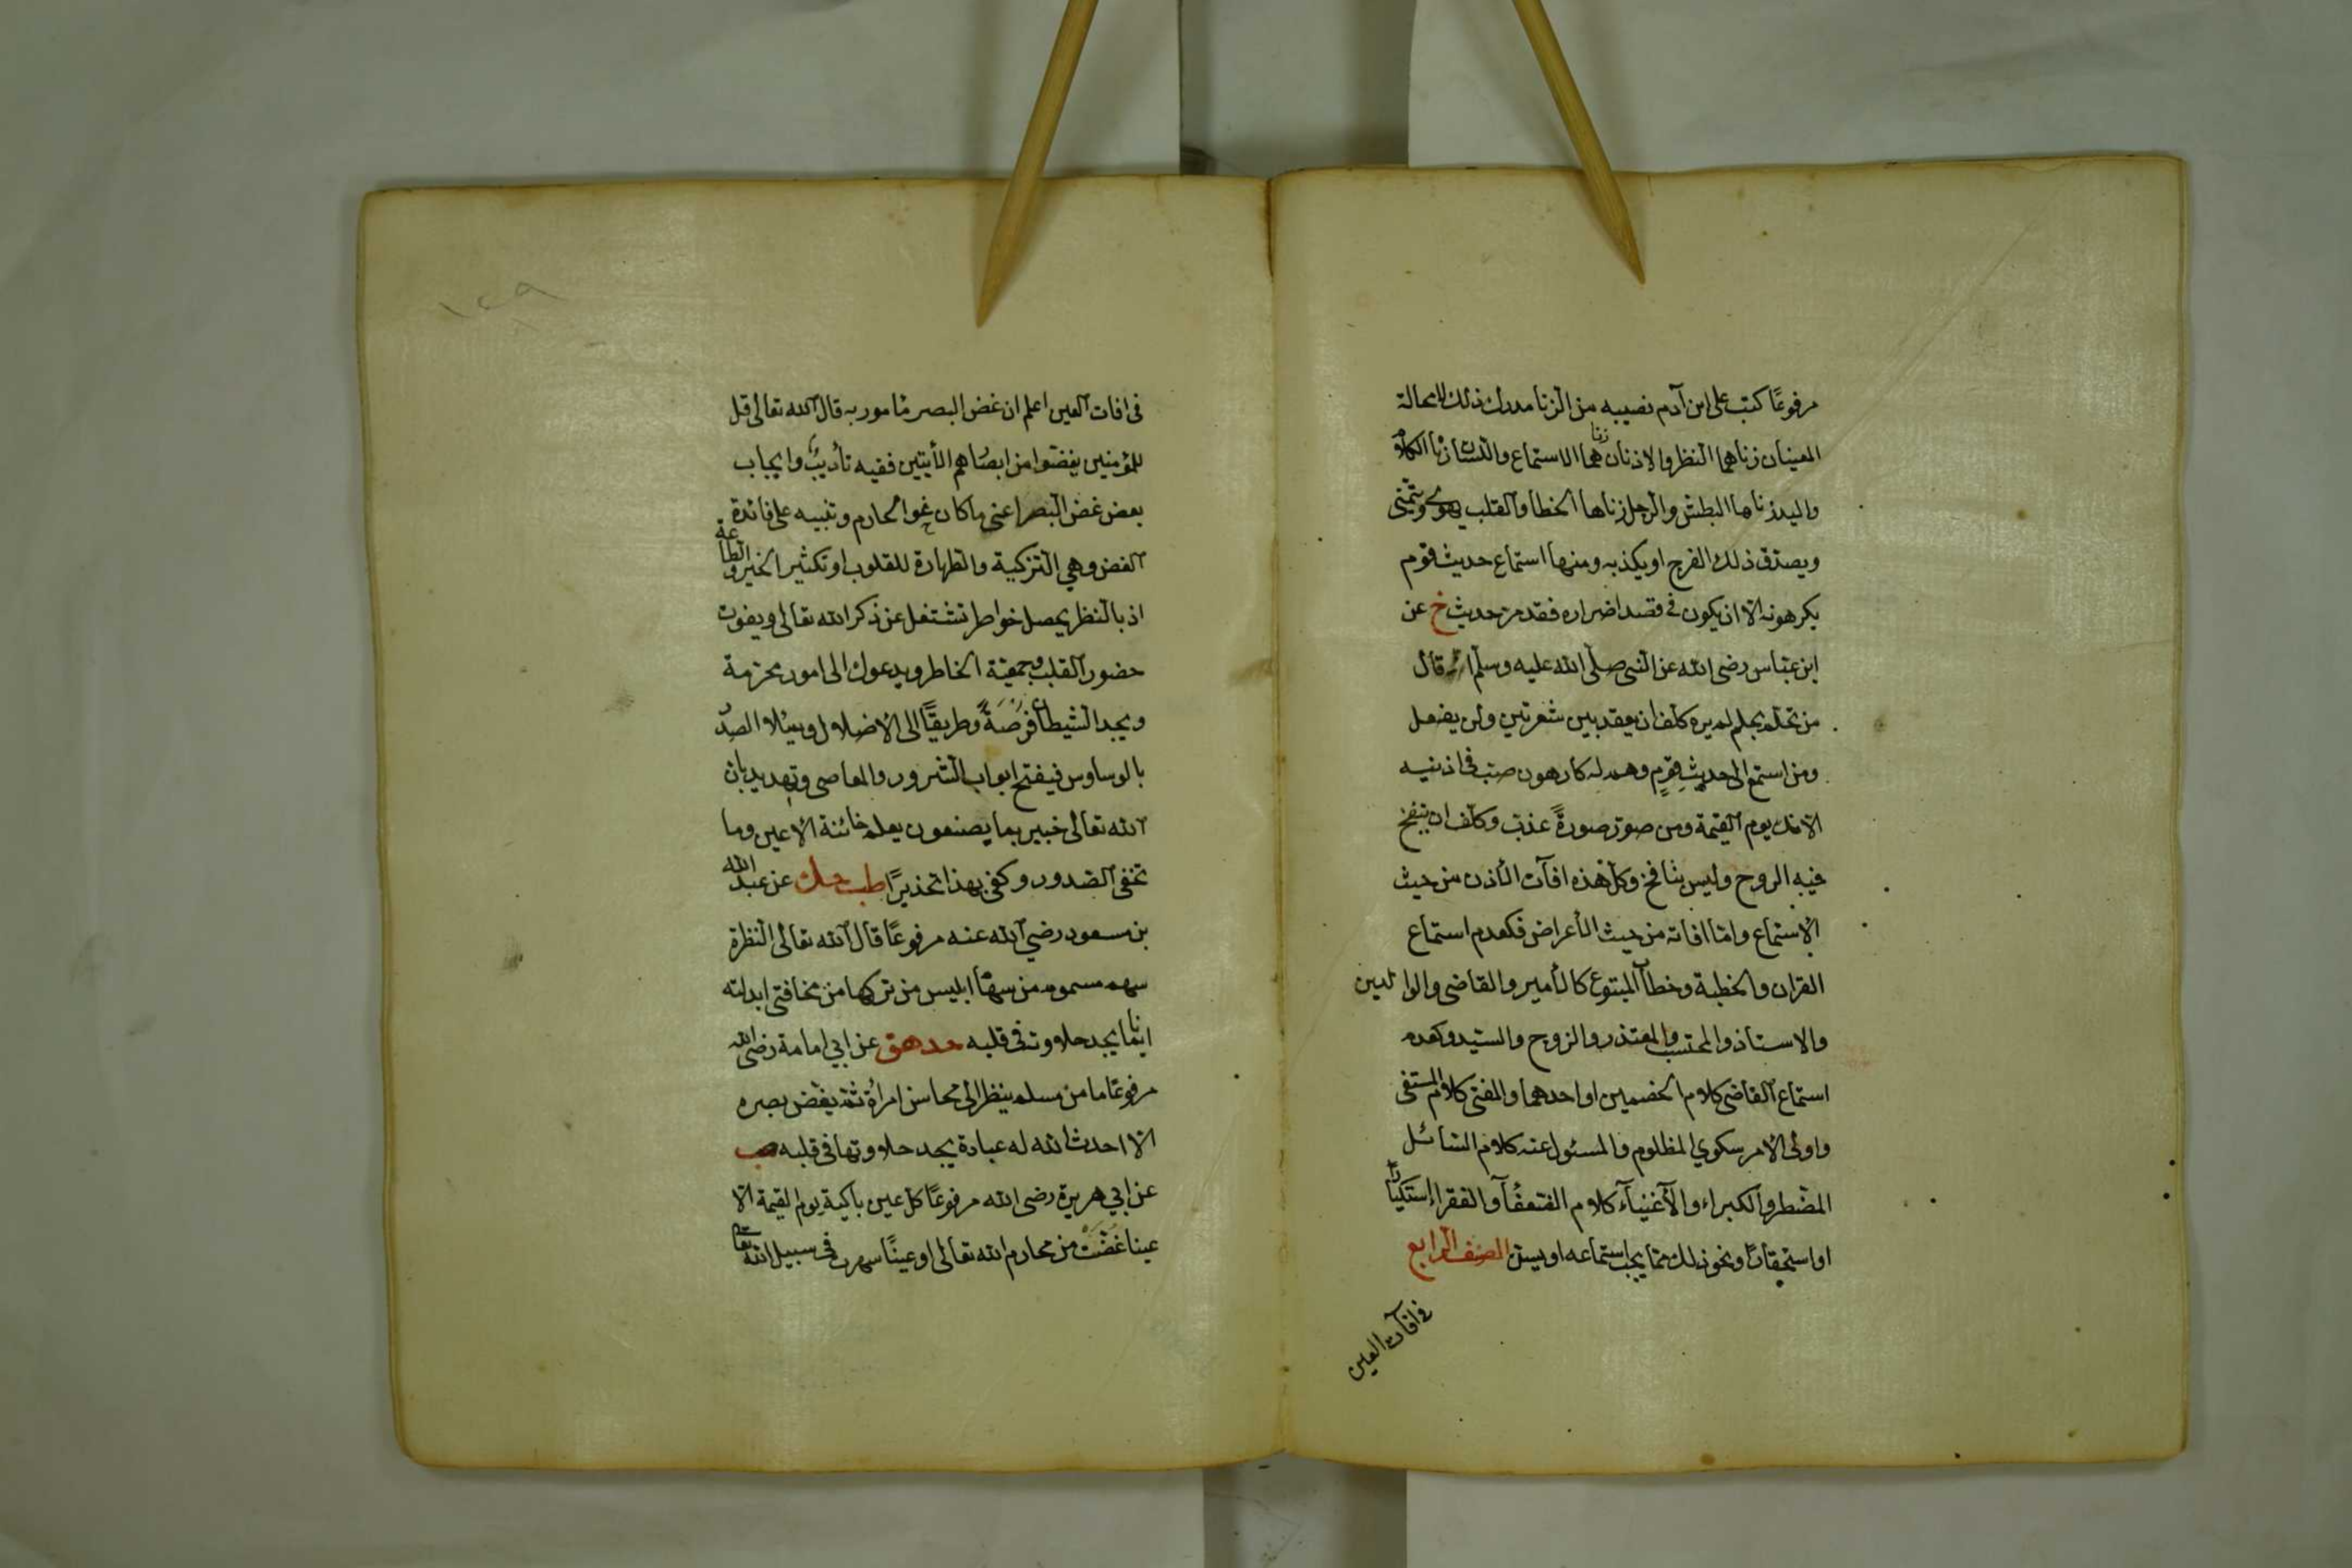 مرفوعًا كتب على ابن آدم نصيبه من الزنا مدرك ذلك لا محالة
العينان زناهما النظر والاذنان زناهما الاستماع واللسان زناه الكلام
واليد زناها البطش والرجل زناها الخطا والقلب يهوى ويتمنى
ويصدق ذلك الفرج او يكذبه ومنها استماع حديث قوم
يكرهونه الا ان يكون في قصد اضراره فقد مر حديث خ عن
ابن عباس رضى الله عن النبى صلى الله عليه وسلم انه قال
من تحلم بحلم لم يره كلف ان يعقد بين شعرتين ولن يفعل
ومن استمع الى حديثِ قومٍ وهم له كارهون صب فى اذنيه
الانك يوم القيمة ومن صور صورةً عذب وكلف ان ينفخ
فيه الروح وليس بنافخ وكل هذه افآت الأذن من حيث
الاستماع واما افاته من حيث الأعراض فكعدم استماع
القران والخطبة وخطاب المتبوع كالأمير والقاضى والوالدين
والاستاذ والمحتسب والمعتذر والزوج والسيد وكعدم
استماع القاضى كلام الخصمين او احدهما والمفتى كلام المستفتى
واولى الامر سكوي المظلوم والمسئول عنه كلام السائل
المضطر والكبراء والأغنيآء كلام الضعفآء والفقراء إستكبارًا
او استحقارًا ونحو ذلك مما يجب استماعه او يسن الصنف الرابع
فى افآت العين
١٤٩
فى افات العين اعلم ان غض البصر مأمور به قال الله تعالى قل
للمؤمنين يغضوا من ابصارهم الأيتين ففيه تأديب وايجاب
بعض غض البصر اعنى ما كان نحو المحارم وتنبيه على فائدة
الغض وهي التزكية والطهارة للقلوب او تكثير الخير والطاعة
اذ بالنظر يحصل خواطر تشتغل عن ذكر الله تعالى ويفوت
حضور القلب وجمعية الخاطر ويدعوك الى امور محرمة
ويجد الشيطان فرصةً وطريقًا الى الاضلال ويملأ الصدر
بالوساوس فيفتح ابواب الشرور والمعاصى وتهديد بان
الله تعالى خبير بما يصنعون يعلم خائنة الأعين وما
تخفى الصدور وكفى بهذا تحذيرًا طب حك عن عبد الله
بن مسعود رضي الله عنه مرفوعًا قال الله تعالى النظرة
سهم مسموم من سهام ابليس من تركها من مخافتى ابدلته
ايمانا يجد حلاوته فى قلبه حد هق عن ابي امامة رضى الله
مرفوعًا ما من مسلم ينظر الى محاسن امرأة ثم يغض بصره
الا احدث الله له عبادة يجد حلاوتها فى قلبه صب
عن ابي هريرة رضى الله مرفوعًا كل عين باكية يوم القيمة الا
عينا غضت من محارم الله تعالى او عينًا سهرت فى سبيل الله تعالى